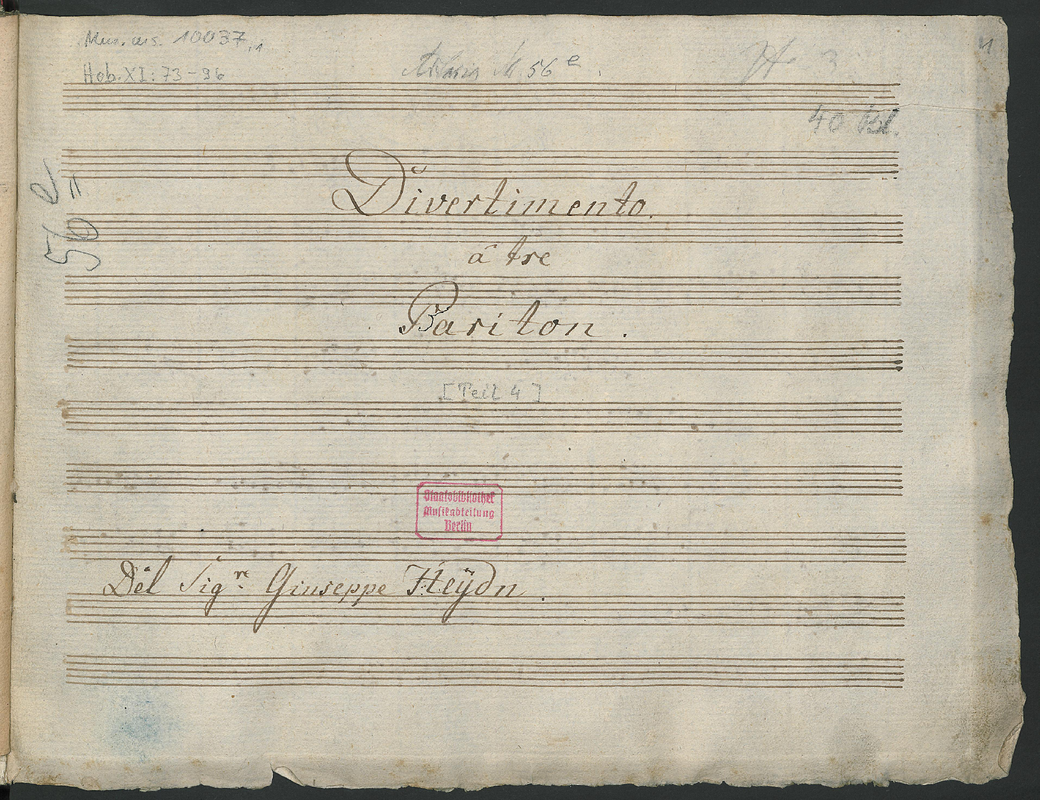 Mus. ms. 10037,1
Hob. XI: 73-96
56 e.
40 Bl.
56 e
Divertimento.
â tre
Bariton.
[Teil 4]
Staatsbibliothek
Musikabteilung
Berlin
Del Sigr. Giuseppe Heÿdn.